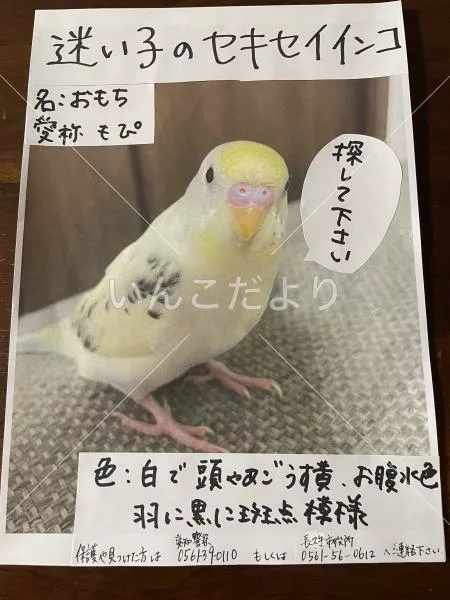 迷い子のセキセイインコ
名:おもち
愛称 もぴ
探して下さい
いんこだより
色:白で頭やあごうす黄、お腹水色
羽に黒に斑点模様
愛知警察 長久手市役所
保護や見つけた方は 0561-39-0110 もしくは 0561-56-0612 へご連絡下さい